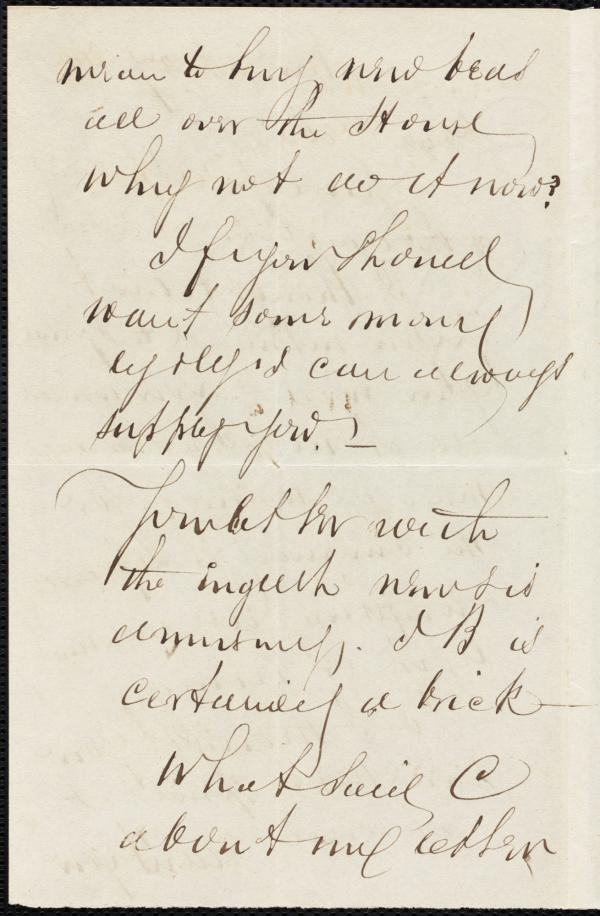 mean to buy new beds
all over the House
why not do it now?
If you should
want some money
I can always
supply you. –
Your letter with
the inglish news is
amusing. J B is
certainly a brick –
What said C
about my letter